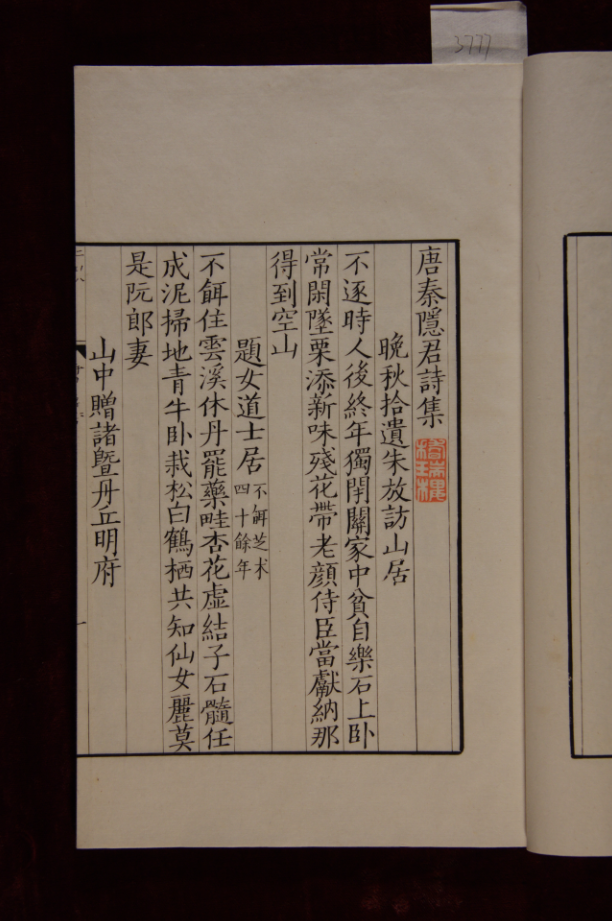 3777
唐秦隱君詩集
晚秋拾遺朱放訪山居
不逐時人後終年獨閉關家中貧自樂石上臥
常閑墜栗添新味殘花帶老顏侍臣當獻納那
得到空山
題女道士居
不餌芝术
四十餘年
不餌住雲溪休丹罷藥畦杏花虛結子石髓任
成泥掃地青牛卧栽松白鶴栖共知仙女麗莫
是阮郎妻
山中贈諸曁丹丘明府
一